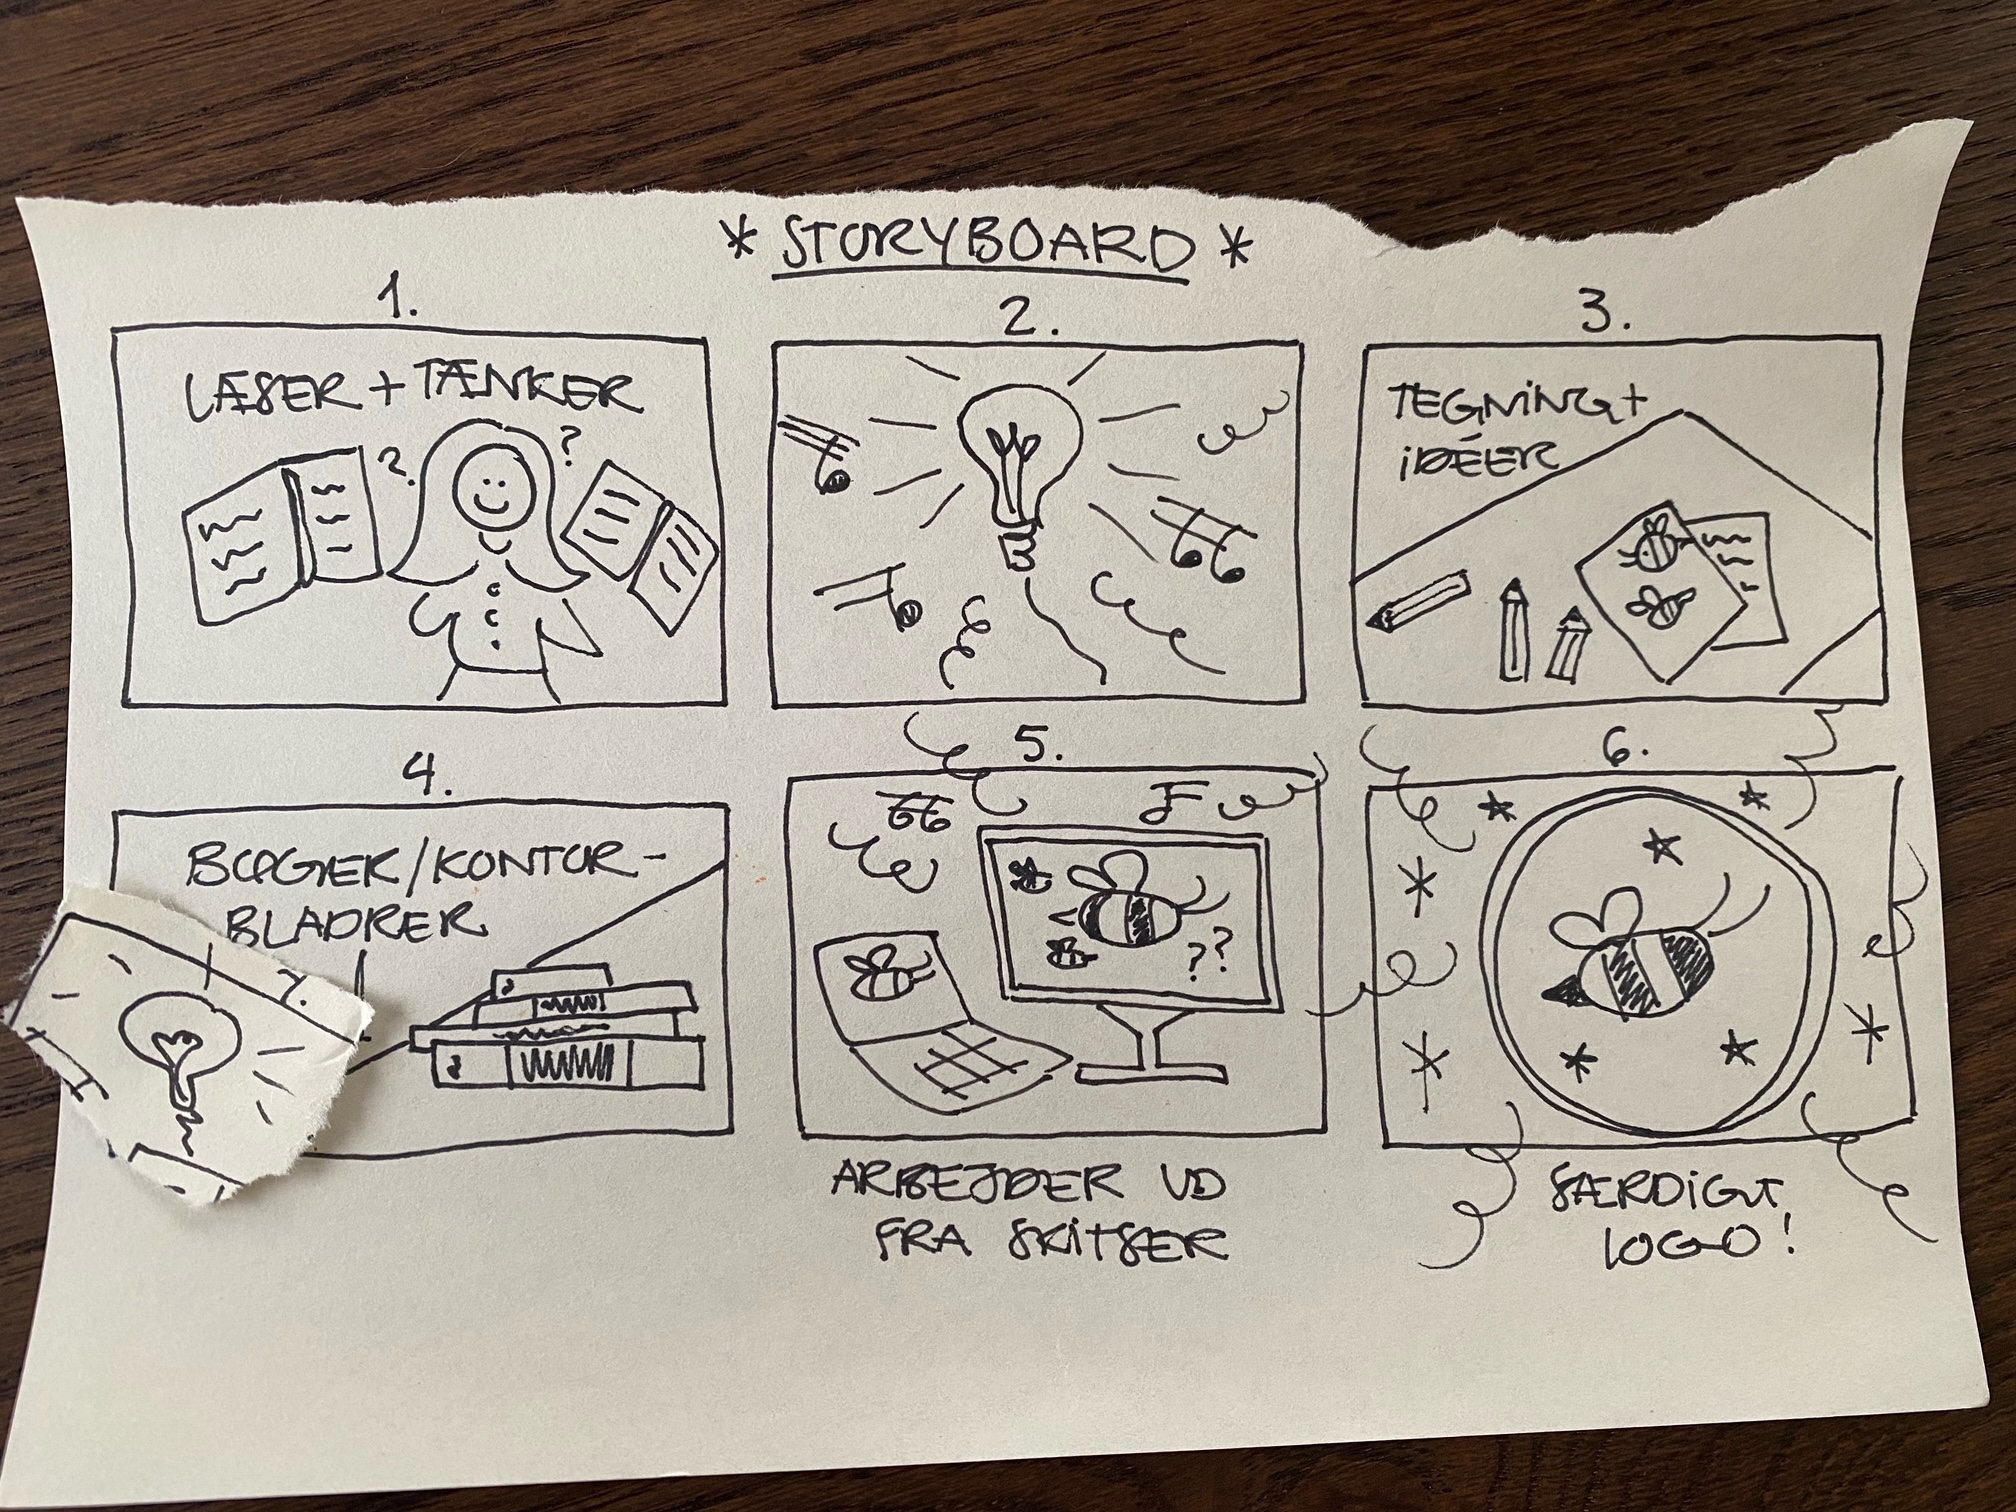 * STORYBOARD *
1.
LÆSER + TÆNKER
? ?
2.
3.
TEGNING +
IDÉER
4.
BØGER/KONTOR-
BLADRER
5.
??
ARBEJDER UD
FRA SKITSER
6.
FÆRDIGT
LOGO!